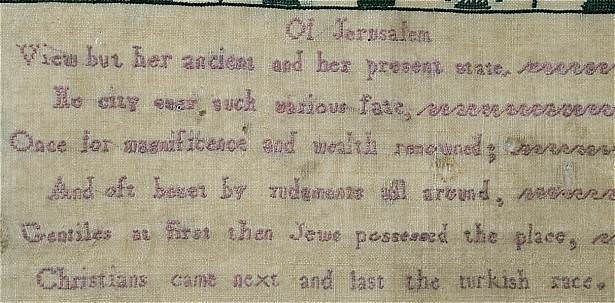 Of Jerusalem
View but her ancient and her present state.
No city ever such various fate,
Once for magnificence and wealth renowned;
And oft beset by judgments all around,
Gentiles at first then Jews possessed the place,
Christians came next and last the turkish race.